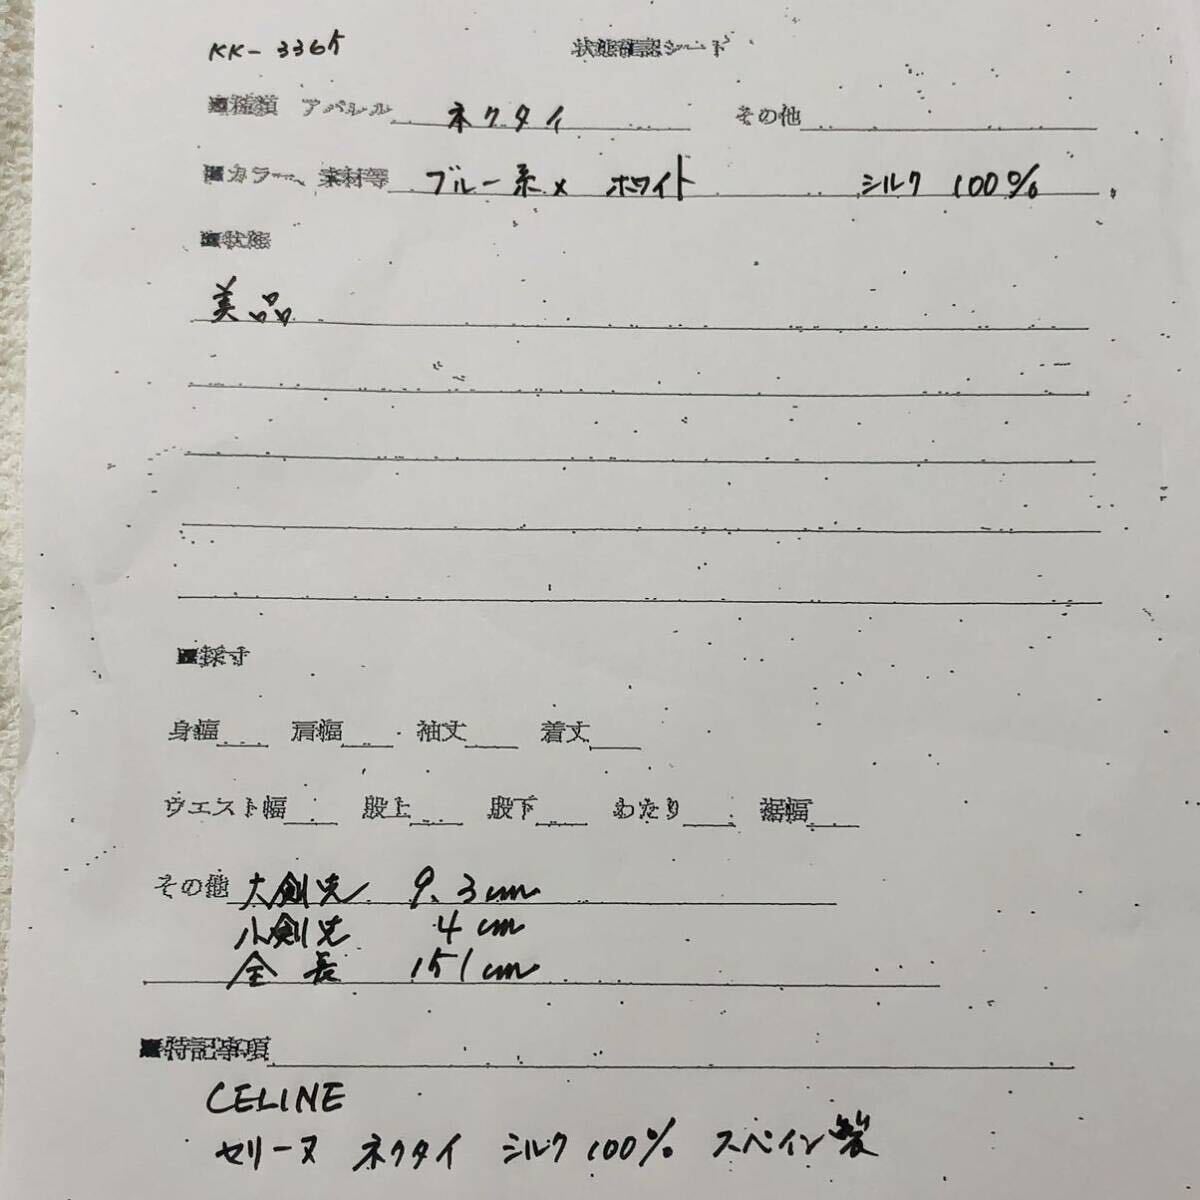 KK-3365 状態確認シート
■種類 アパレル ネクタイ その他
■カラー、素材等 ブルー系× ホワイト シルク 100%
■状態
美品
■採寸
身幅 肩幅 袖丈 着丈
ウエスト幅 股上 股下 わたり 裾幅
その他 大剣先 9.3cm
小剣先 4cm
全長 151cm
■特記事項
CELINE
セリーヌ ネクタイ シルク 100% スペイン製